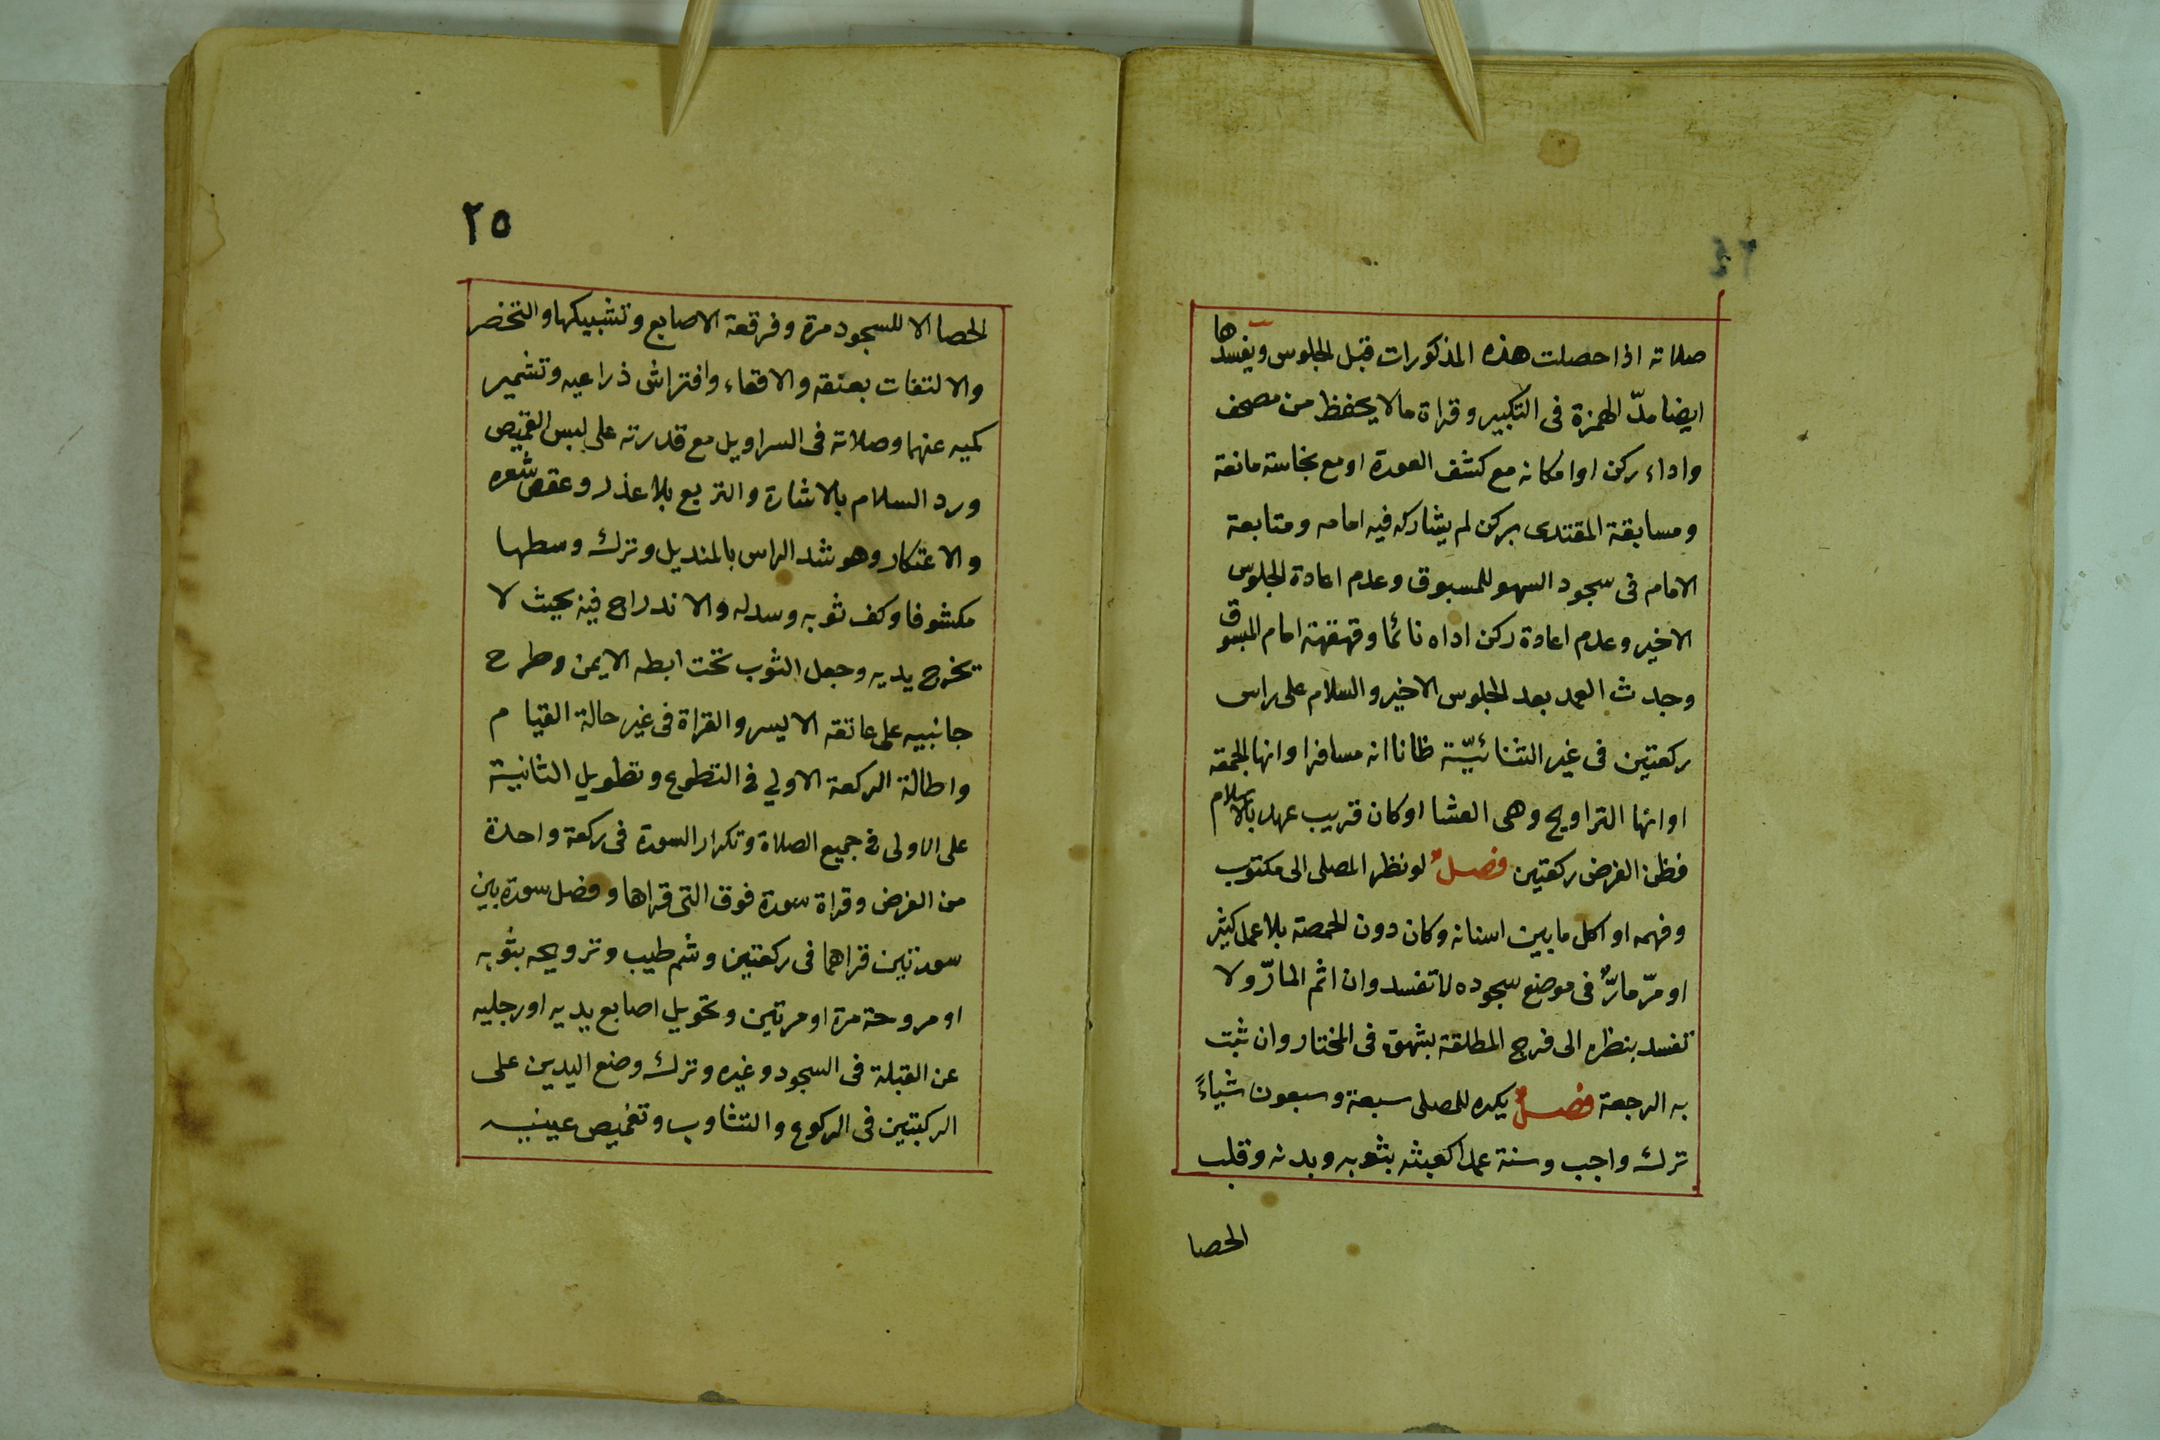 صلاته اذا حصلت هذه المذكورات قبل الجلوس ويفسدها
ايضا مدّ الهمزة فى التكبير وقراة مالا يحفظ من مصحف
واداء ركن او امكانه مع كشف العورة او مع نجاسة مانعة
ومسابقة المقتدى بركن لم يشاركه فيه امامه ومتابعة
الامام فى سجود السهو للمسبوق وعدم اعادة الجلوس
الاخير وعدم اعادة ركن اداه نائما وقهقهة امام المسبوق
وحدث العمد بعد الجلوس الاخير والسلام على راس
ركعتين فى غير الثنائيّة ظانا انه مسافرا وانها الجمعة
او انها التراويح وهى العشا او كان قريب عهد بالاسلام
فظن الفرض ركعتين فصلٌ لو نظر المصلى الى مكتوب
وفهمه او اكل ما بين اسنانه وكان دون الحمصة بلا عمل كثير
او مرّ مارٌّ فى موضع سجوده لا تفسد وان اثم المارّ ولا
تفسد بنظره الى فرج المطلقة بشهوة فى المختار وان ثبت
به الرجعة فصلٌ يكره للمصلى سبعة وسبعون شياءً
ترك واجب وسنة عمدا كعبثه بثوبه وبدنه وقلب
الحصا
٢٥
الحصا الا للسجود مرة وفرقعة الاصابع وتشبيكها والتخصر
والالتفات بعنقه والاقعاء وافتراش ذراعيه وتشمير
كميه عنهما وصلاته فى السراويل مع قدرته على لبس القميص
ورد السلام بالاشارة والتربع بلا عذر وعقص شعره
والاعتكار وهو شد الراس بالمنديل وترك وسطها
مكشوفا وكف ثوبه وسدله والاندراج فيه بحيث لا
تخرج يديه وجعل الثوب تحت ابطه الايمن وطرح
جانبيه على عاتقه الايسر والقراة فى غير حالة القيام
واطالة الركعة الاولي فى التطوع وتطويل الثانية
على الاولى فى جميع الصلاة وتكرار السورة فى ركعة واحدة
من الفرض وقراة سورة فوق التى قراها وفصل سورة بين
سورتين قراهما فى ركعتين وشم طيب وترويحه بثوبه
او مروحة مرة او مرتين وتحويل اصابع يديه او رجليه
عن القبلة فى السجود وغيره وترك وضع اليدين على
الركبتين فى الركوع والتثاوب وتغميص عينيه